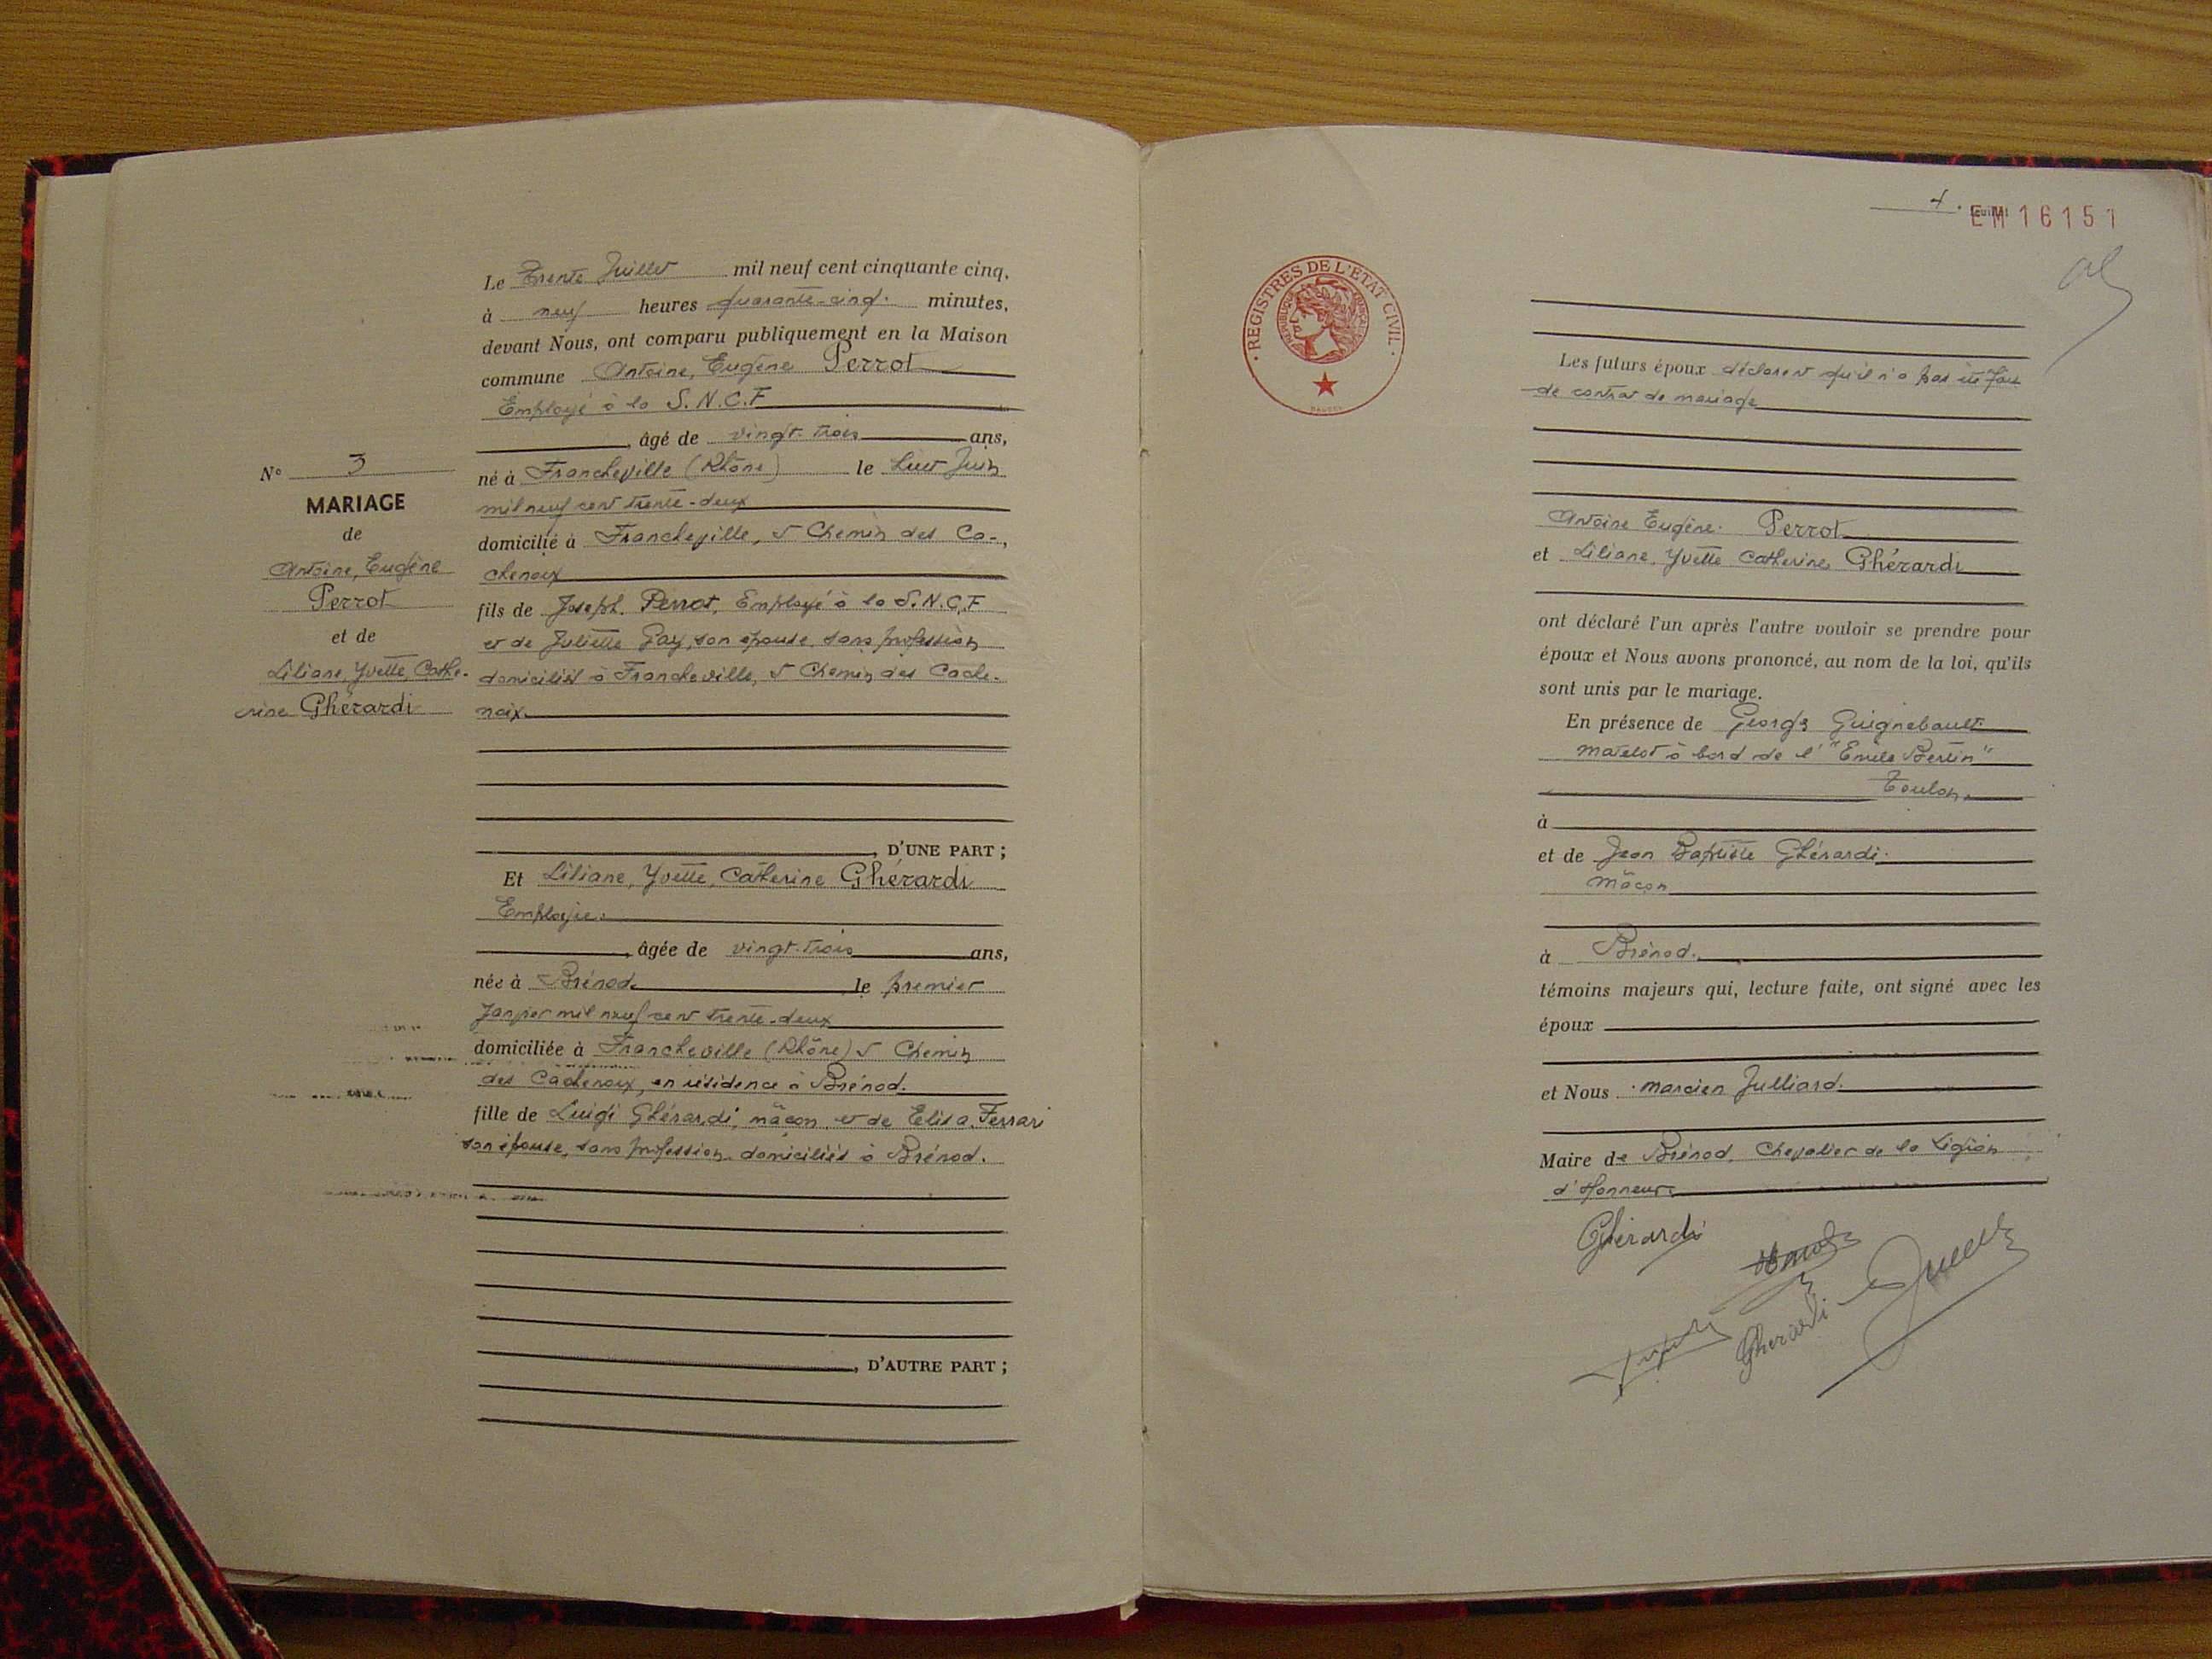 Le Trente Juillet mil neuf cent cinquante cinq,
à neuf heures quarante-cinq. minutes,
devant Nous, ont comparu publiquement en la Maison
commune Antoine, Eugène Perrot
Employé à la S.N.C.F
, âgé de vingt-trois ans,
né à Francheville (Rhône) le huit Juin
mil neuf cent trente-deux
domicilié à Francheville, 5 Chemin des Ca-,
chenoix
fils de Joseph. Perrot, Employé à la S.N.C.F
et de Juliette Gay, son épouse, sans profession
domiciliés à Francheville, 5 Chemin des Cache-
noix
, D'UNE PART ;
Et Liliane, Yvette, Catherine Ghérardi
Employée.
, âgée de vingt-trois ans,
née à Brénod. le premier
Janvier mil neuf cent trente-deux
domiciliée à Francheville (Rhône) 5 Chemin
des Cachenoix, en résidence à Brénod.
fille de Luigi Ghérardi, maçon, et de Elisa, Ferrari
son épouse, sans profession, domiciliés à Brénod.
, D'AUTRE PART ;
N° 3
MARIAGE
de
Antoine, Eugène
Perrot
et de
Liliane, Yvette, Cathe-
rine Ghérardi
4. EM 16151
REGISTRES DE L'ETAT CIVIL
REPUBLIQUE FRANÇAISE
Les futurs époux déclarent qu'il n'a pas été fait
de contrat de mariage
Antoine Eugène. Perrot
et Liliane, Yvette Catherine Ghérardi
ont déclaré l'un après l'autre vouloir se prendre pour
époux et Nous avons prononcé, au nom de la loi, qu'ils
sont unis par le mariage.
En présence de Georges Guignebault
matelot à bord de l' "Emile Bertin"
Toulon,
à
et de Jean Baptiste Ghérardi.
maçon
à Brénod.
témoins majeurs qui, lecture faite, ont signé avec les
époux
et Nous marcien Julliard.
Maire de Brénod, Chevalier de la Légion
d'Honneur.
Ghérardi
Gherardi